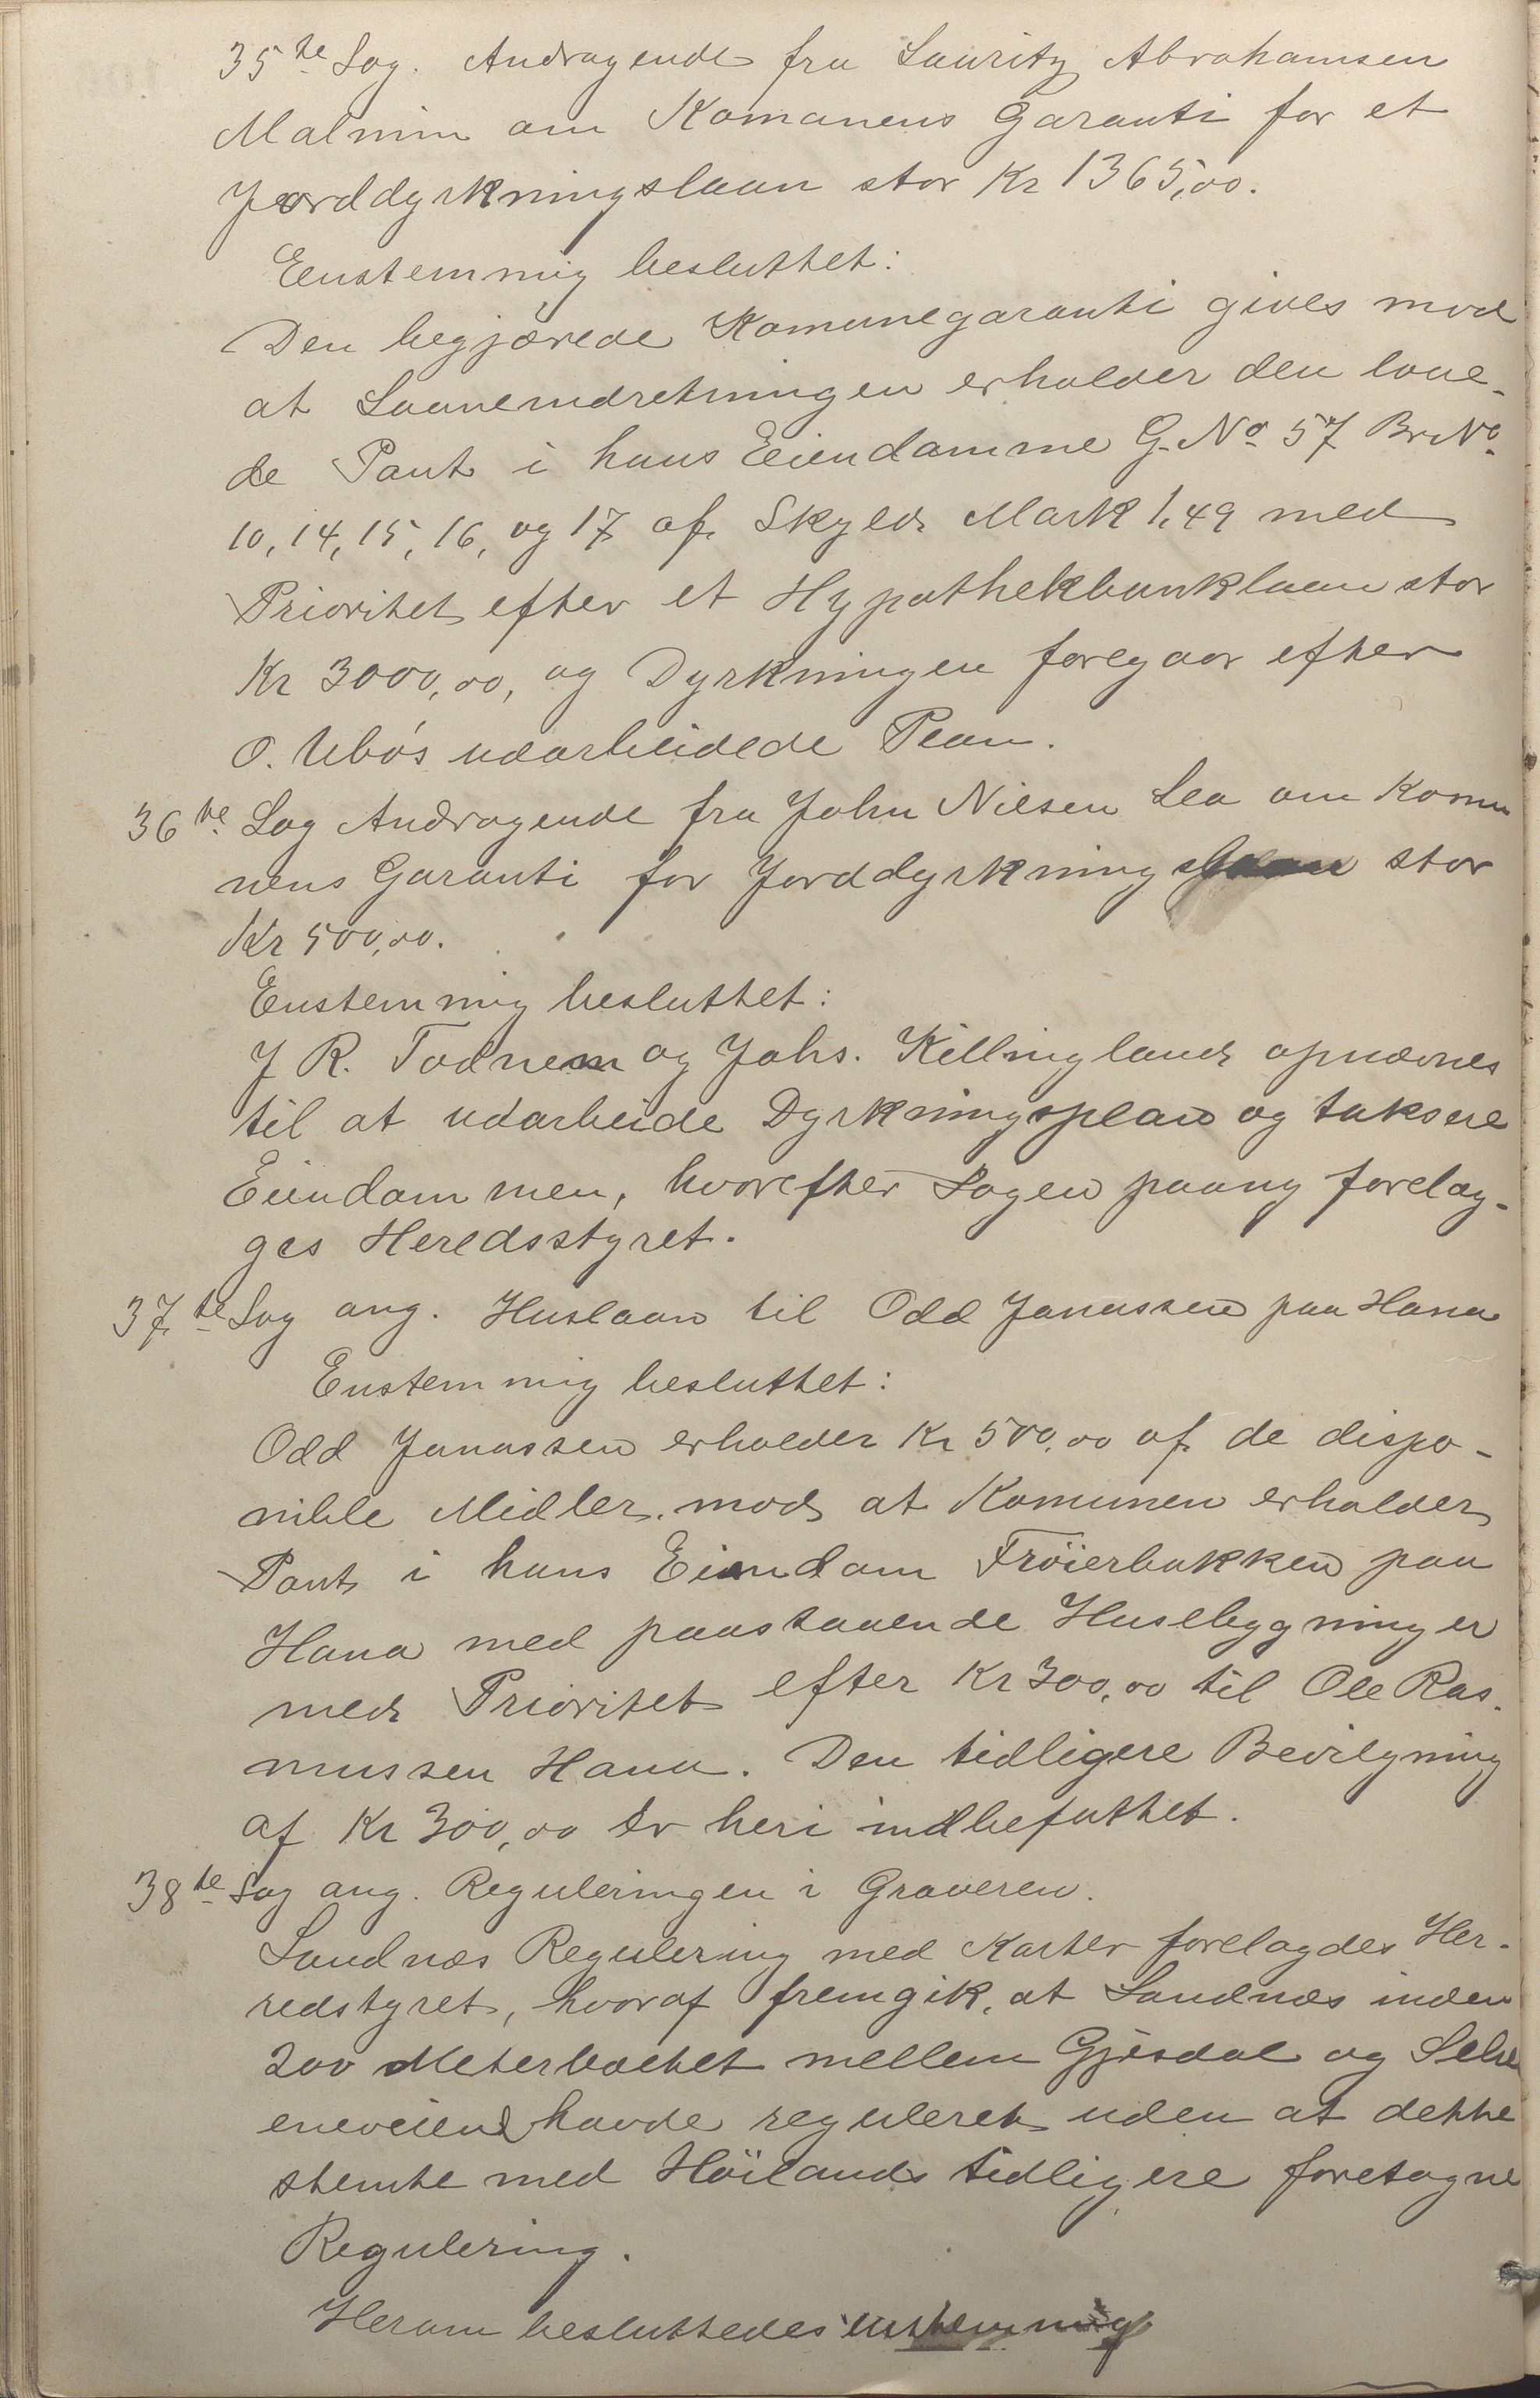 35te Sag. Andragende fra Lauritz Abrahamsen
Malmin om Komunens Garanti for et
Jorddyrkningslaan stor Kr 1365,00.
Eenstemmig besluttet:
Den begjærede Komunegaranti gives mod
at Laaneindretningen erholder den love-
de Pant i hans Eiendomme G. No 57 Br No.
10, 14, 15, 16, og 17 af Skyld Mark 1,49 med
Prioritet efter et Hypothekbanklaan stor
Kr 3000,00, og Dyrkningen foregaar efter
O. Ubø's udarbeidede Plan.
36te Sag Andragende fra John Nilsen Lea om Komu
nens Garanti for Jorddyrkningslaan stor
Kr 500,00.
Enstemmig besluttet:
J R. Todnem og Johs. Killingland opnævnes
til at udarbeide Dyrkningsplan og taksere
Eiendommen, hvorefter Sagen paany forelæg-
ges Heredsstyret.
37te Sag ang. Huslaan til Odd Jonassen paa Hana
Enstemmig besluttet:
Odd Jonassen erholder Kr 500,00 af de dispo-
nible Midler. mod at Komunen erholder
Pant i hans Eiendom Frøierbakken paa
Hana med paastaaende Husebygninger
med Prioritet efter Kr 300,00 til Ole Ras-
mussen Hana. Den tidligere Bevilgning
af Kr 300,00 er heri indbefattet.
38te Sag ang. Reguleringen i Graveren.
Sandnæs Regulering med Karter forelagdes Her-
redstyret, hvoraf fremgik, at Sandnæs inden
200 Meterbæltet mellem Gjesdal og
eneveien havde reguleret uden at dette
stemte med Höilands tidligere foretagne
Regulering.
Herom besluttedes enstemmig